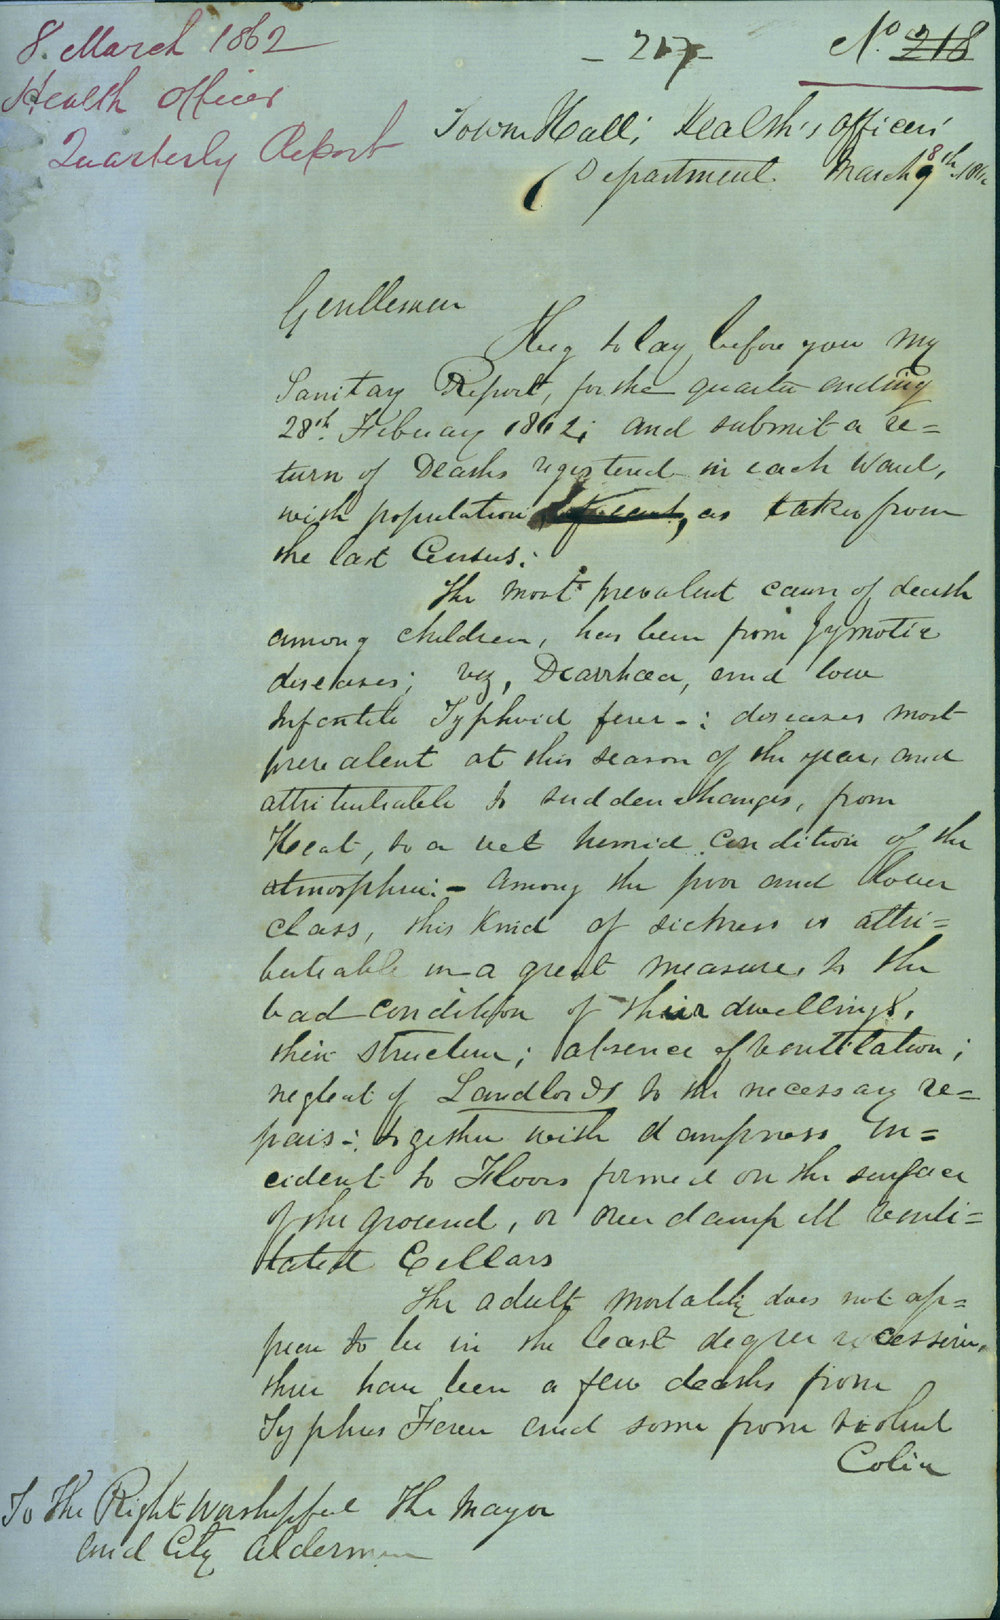 8. March 1862
Health Officer
Quarterly Report
- 217 -
No. 218
Town Hall; Health's Officers'
Department. March 8th 1862
Gentlemen
I beg to lay before you my
Sanitary Report, for the quarter ending
28th. February 1862; and submit a re=
turn of Deaths registered in each Ward,
with population as taken from
the last Census:
The most prevalent cause of death
among children, has been from Zymotic
diseases; viz, Diarrhoea, and low
Infantile Typhoid fever -: diseases most
prevalent at this season of the year, and
attributable to sudden changes, from
Heat, to a wet humid condition of the
atmosphere: - Among the poor and lower
class, this kind of sickness is attri=
butable in a great measure, to the
bad condition of their dwellings,
their structure; absence of ventilation;
neglect of Landlords to the necessary re=
pairs: together with dampness in=
cident to Floors formed on the surface
of the ground, or over damp ill venti=
lated Cellars
The adult mortality does not ap=
pear to be in the least degree excessive,
there have been a few deaths from
Typhus Fever and some from violent
Colic
To The Right Worshipful The Mayor
and City Aldermen